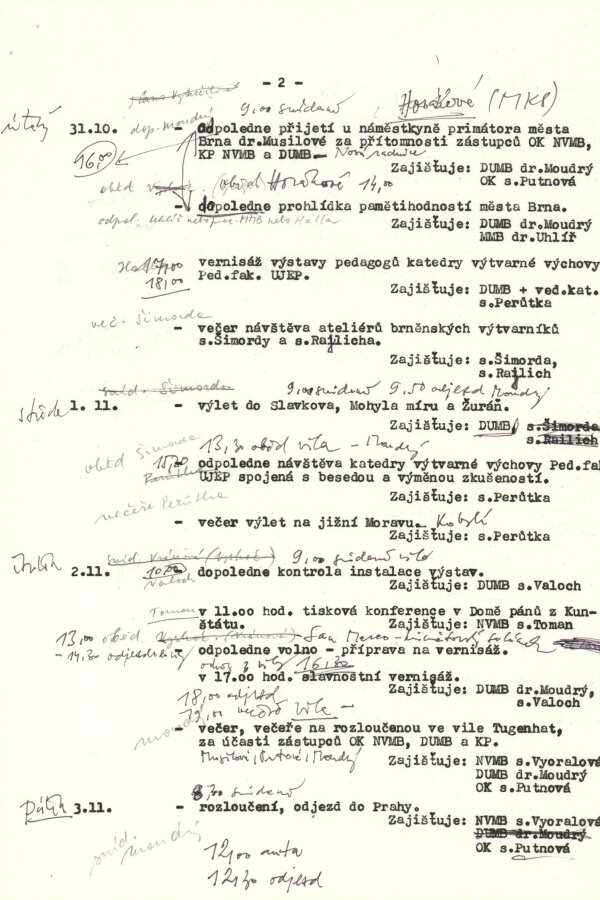 - 2 -
9,00 snídaně Horákové (MKS)
31.10. dop. Moudrý - odpoledne přijetí u náměstkyně primátora města
16,00 Brna dr.Musilové za přítomnosti zástupců OK NVMB,
KP NVMB a DUMB- Nová radnice
Zajišťuje: DUMB dr.Moudrý
oběd oběd Horákové 14,00 OK s.Putnová
- dopoledne prohlídka pamětihodností města Brna.
odpol. Uhlíř nebo prac. MMB nebo Halla Zajišťuje: DUMB dr.Moudrý
MMB dr.Uhlíř
17,00 vernisáž výstavy pedagogů katedry výtvarné výchovy
18,00 Ped.fak. UJEP.
Zajišťuje: DUMB + ved.kat.
s.Perůtka
več. Šimorda
- večer návštěva ateliérů brněnských výtvarníků
s.Šimordy a s.Railicha.
Zajišťuje: s.Šimorda,
s.Railich
sníd. Šimorda 9,00 snídaně 9.30 odjezd Moudrý
středa 1. 11. - výlet do Slavkova, Mohyla míru a Žuráň.
Zajišťuje: DUMB, s.Šimorda
s.Railich
oběd Šimorda 13,30 oběd vila - Moudrý
15,30 odpoledne návštěva katedry výtvarné výchovy Ped.fak
UJEP spojená s besedou a výměnou zkušeností.
večeře Perůtka Zajišťuje: s.Perůtka
- večer výlet na jižní Moravu. Kobylí
Zajišťuje: s.Perůtka
9,00 snídaně vila
2.11. 10,00 - dopoledne kontrola instalace výstav.
Valoch Zajišťuje: DUMB s.Valoch
Toman v 11.00 hod. tisková konference v Domě pánů z Kun-
štátu. Zajišťuje: NVMB s.Toman
13,00 oběd San Marco
- 14,30 odjezd do vily - odpoledne volno - příprava na vernisáž.
odvoz z vily 16,30
v 17.00 hod. slavnostní vernisáž.
Zajišťuje: DUMB dr.Moudrý,
18,00 odjezd s.Valoch
19,00 vila -
Moudrý - večer, večeře na rozloučenou ve vile Tugenhat,
za účasti zástupců OK NVMB, DUMB a KP.
Musilová, Putnová, Moudrý Zajišťuje: NVMB s.Vyoralová
DUMB dr.Moudrý
8,30 snídaně OK s.Putnová
pátek 3.11. - rozloučení, odjezd do Prahy.
Zajišťuje: NVMB s.Vyoralová
DUMB dr.Moudrý
sníd. Moudrý OK s.Putnová
12,00 auta
12,30 odjezd